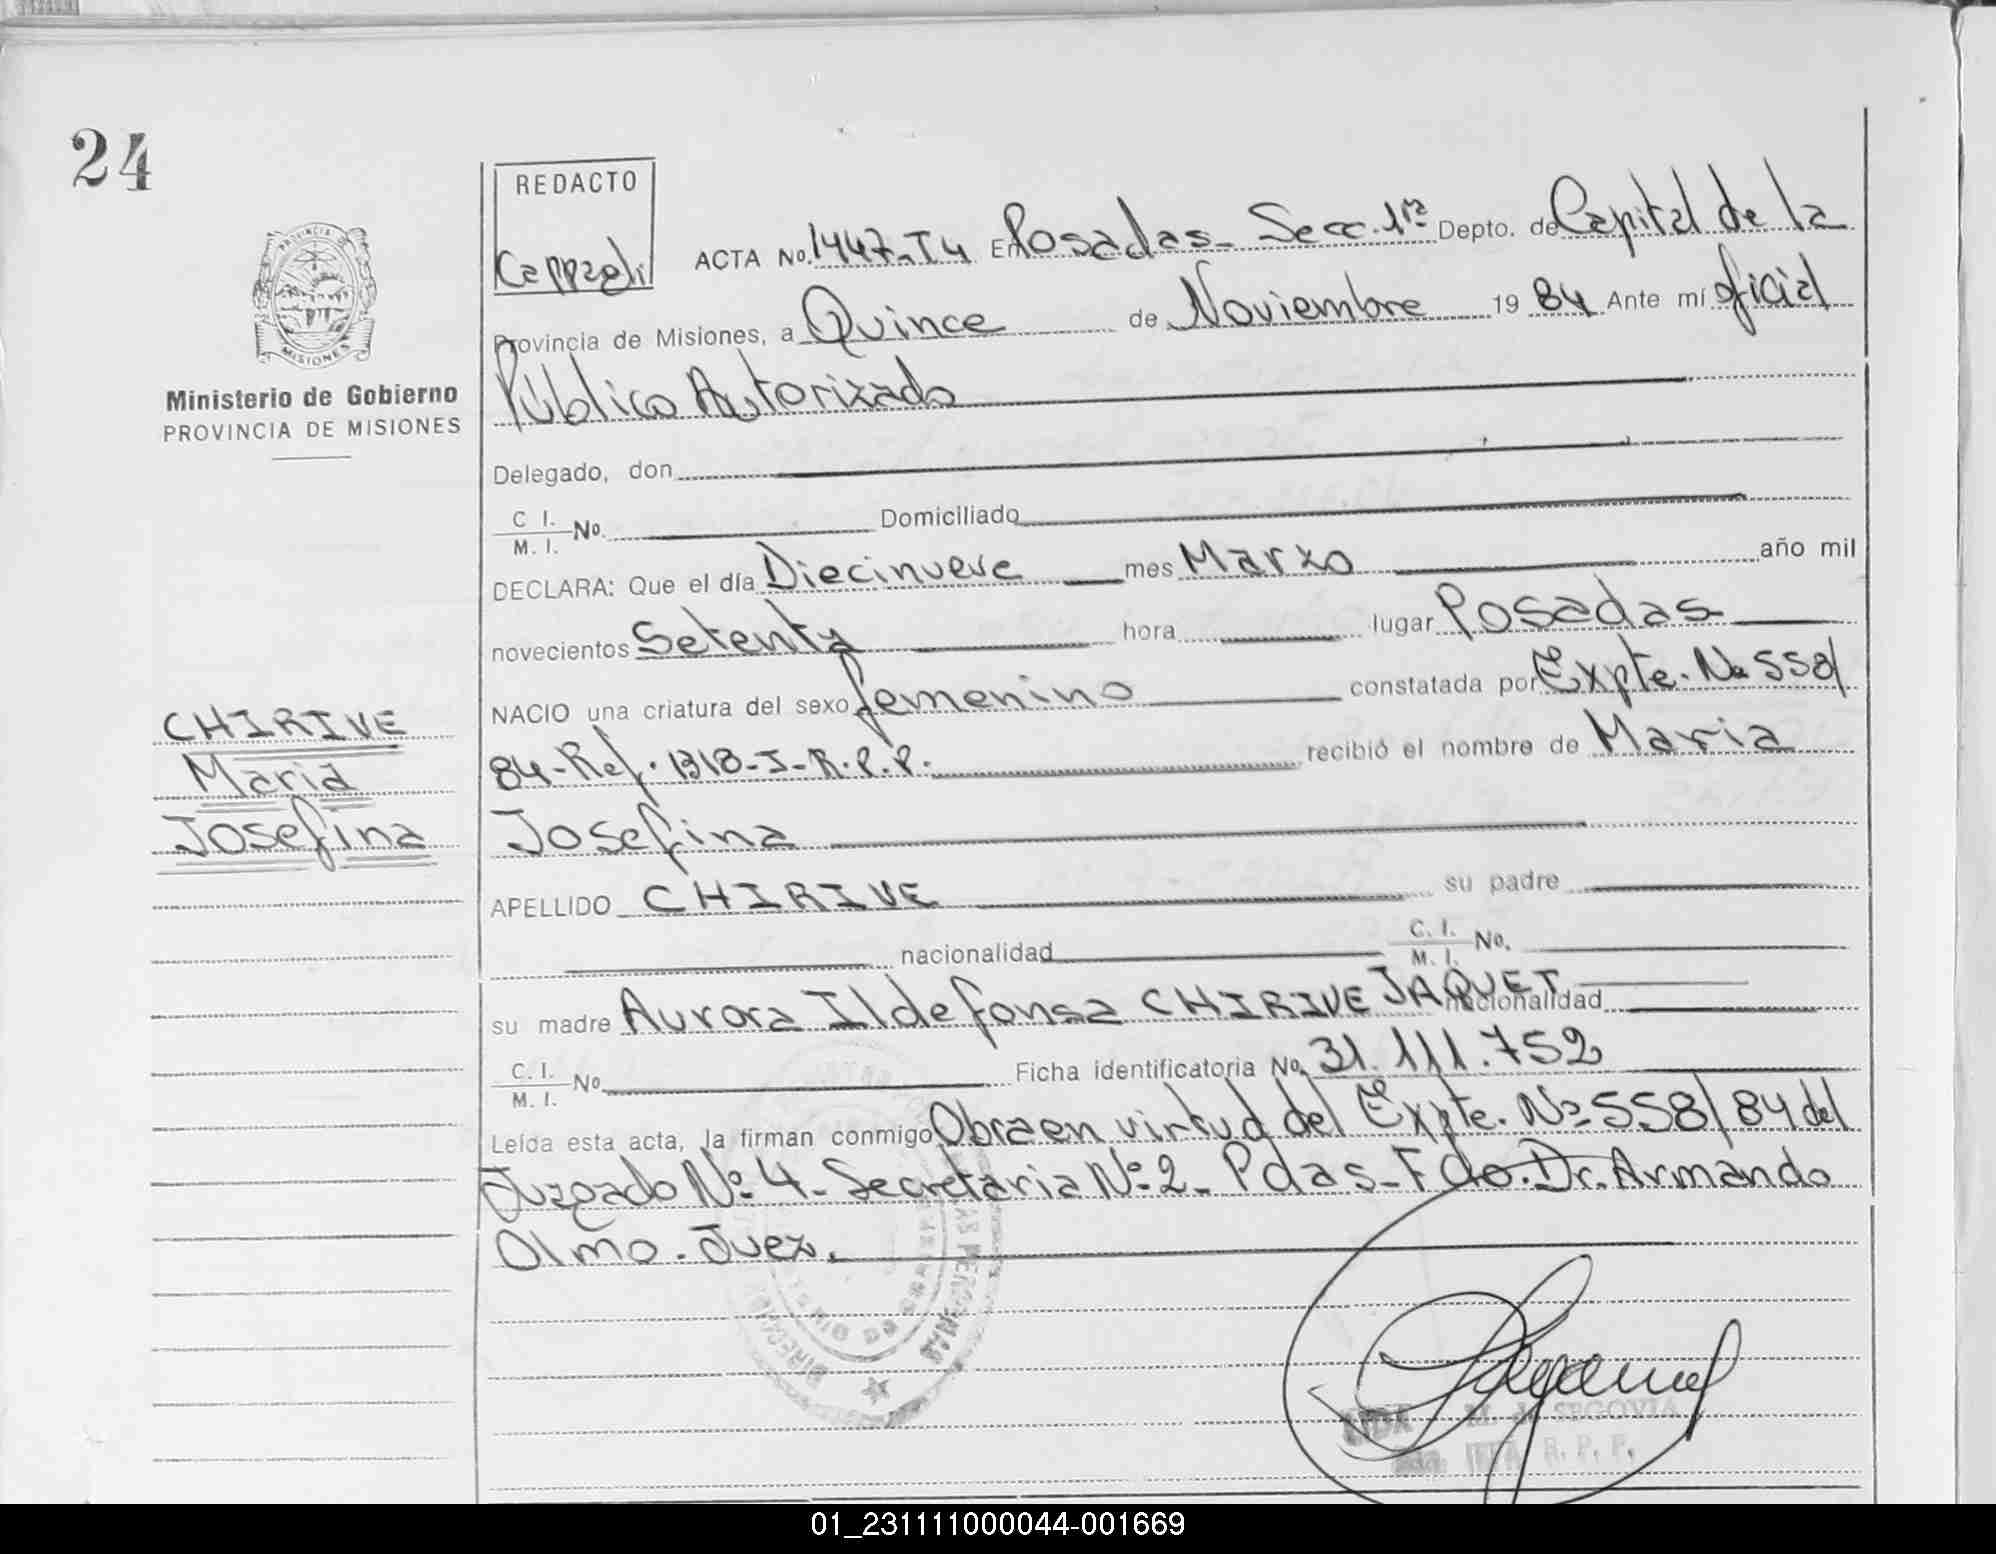 24
REDACTO
Cappzeli
ACTA No. 1447-T4 En Posadas - Secc. 1ra Depto. de Capital de la
Provincia de Misiones, a Quince de Noviembre 19 84 Ante mí oficial
Público Autorizado
PROVINCIA DE
MISIONES
Ministerio de Gobierno
PROVINCIA DE MISIONES
Delegado, don
C. I.
M. I. No. Domiciliado
DECLARA: Que el día Diecinueve mes Marzo año mil
novecientos Setenta hora lugar Posadas
NACIO una criatura del sexo femenino constatada por Expte. No 558/
84-Ref. 1318-J-R.P.P. recibió el nombre de Maria
Josefina
CHIRIVE
Maria
Josefina
APELLIDO CHIRIVE su padre
nacionalidad C. I.
M. I. No.
su madre Aurora Ildefonsa CHIRIVE JAQUET nacionalidad
C. I.
M. I. No. Ficha identificatoria No. 31.111.752
Leída esta acta, la firman conmigo Obra en virtud del Expte. Nº 558/84 del
Juzgado Nº 4 - Secretaria Nº 2 - Pdas - Fdo. Dr. Armando
Olmo. Juez.
M. de SEGOVIA
R. P. P.
01_231111000044-001669